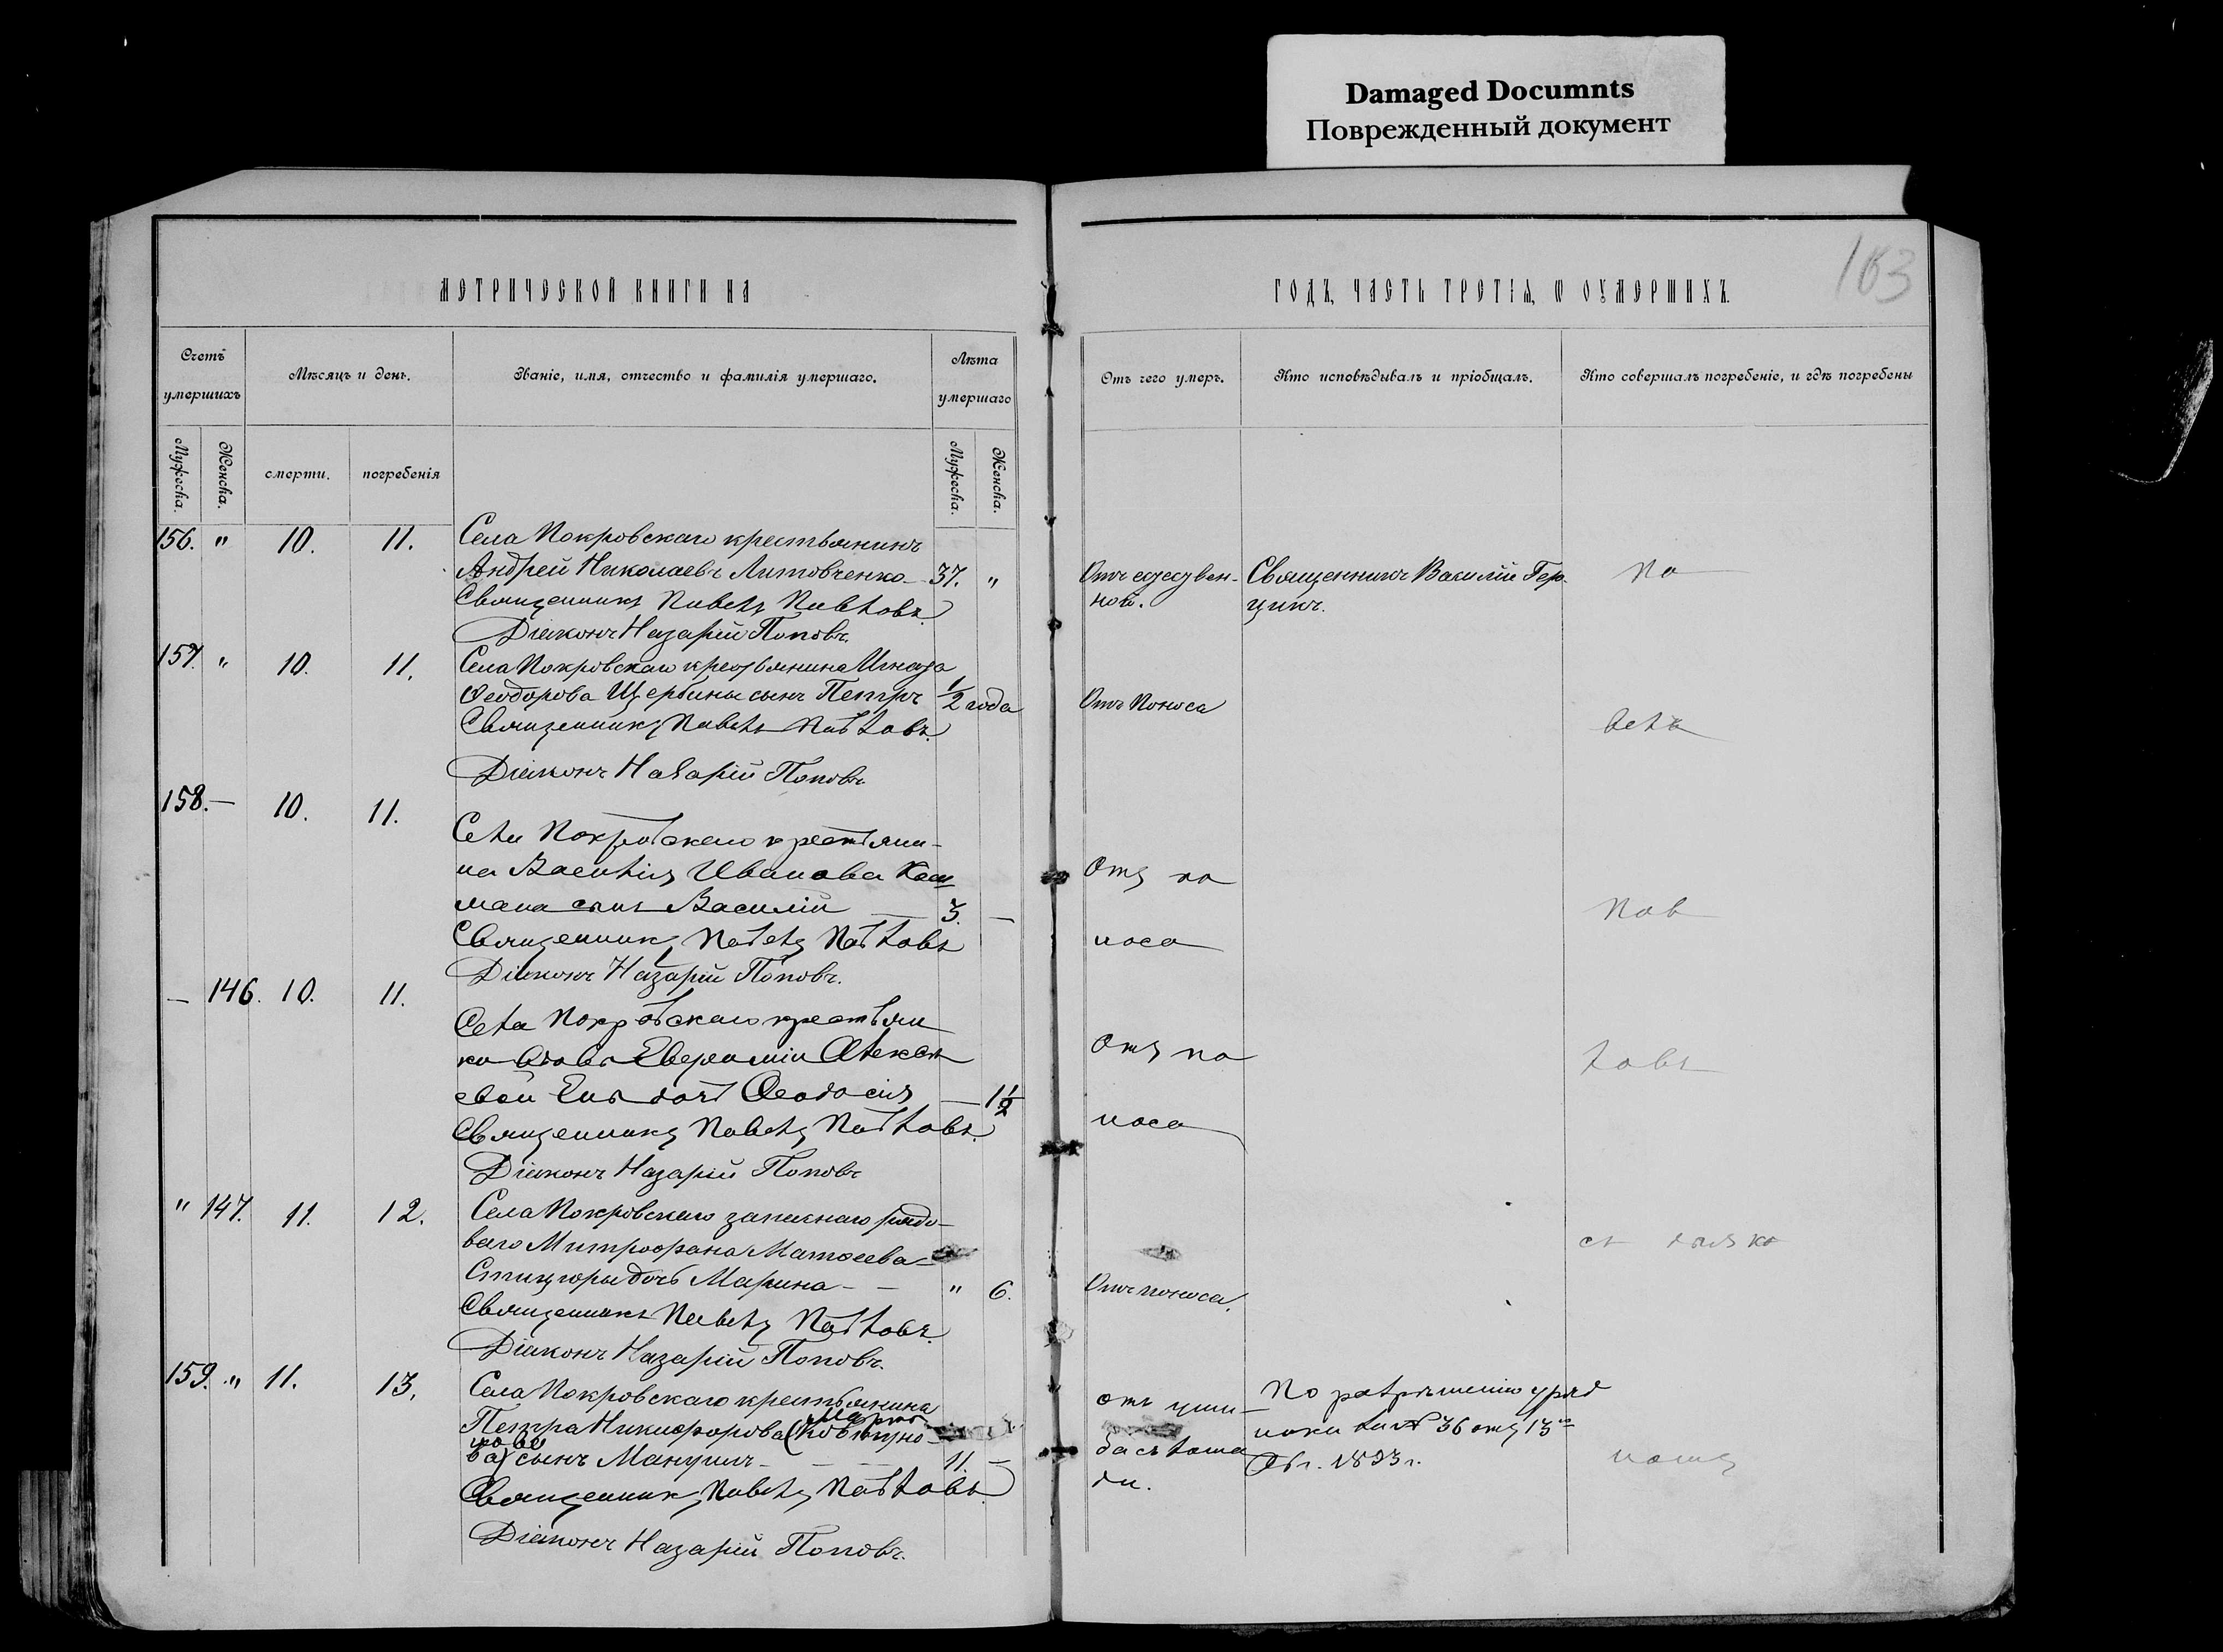 Damaged Documnts
Поврежденный документ
163
МЕТРИЧЕСКОЙ КНИГИ НА
ГОДЪ, ЧАСТЬ ТРЕТІЯ, Ѡ ОУМЕРШИХЪ.
Счетъ умершихъ
Мѣсяцъ и день.
Званіе, имя, отчество и фамилія умершаго.
Лѣта умершаго
Отъ чего умеръ.
Кто исповѣдывалъ и пріобщалъ.
Кто совершалъ погребеніе, и гдѣ погребены
Мужеска.
Женска.
смерти.
погребенія
Мужеска.
Женска.
156. " 10. 11. Села Покровскаго крестьянинъ
Андрей Николаевъ Литовченко 37. "
Священникъ Павелъ Павловъ.
Діаконъ Назарій Поповъ.
Отъ естествен-
ной.
Священникъ Василій Гер-
цикъ.
По
157. " 10. 11. Села Покровскаго крестьянина Игната
Ѳеодорова Щербины сынъ Петръ 1/2 года
Священникъ Павелъ Павловъ.
Діаконъ Назарій Поповъ.
Отъ поноса
158. — 10. 11.
Села Покровскаго крестьяни-
на Василія Иванова
сынъ Василій — 3. —
Священникъ Павелъ Павловъ
Діаконъ Назарій Поповъ.
Отъ по
носа
Пав
— 146. 10. 11.
Села Покровскаго крестьян
ки вдовы
дочь Ѳеодосія — 1 1/2
Священникъ Павелъ Павловъ.
Діаконъ Назарій Поповъ
Отъ по
носа
ловъ
" 147. 11. 12. Села Покровскаго запаснаго рядо-
ваго Митрофана Матѳеева
дочь Марина - - " 6.
Священникъ Павелъ Павловъ.
Діаконъ Назарій Поповъ.
Отъ поноса.
съ
159. " 11. 13. Села Покровскаго крестьянина
Петра Никифорова
сынъ - - - 11. -
Священникъ Павелъ Павловъ.
Діаконъ Назарій Поповъ.
отъ уши-
ба съ лоша
ди.
По разрѣшенію уряд
ника за № 36 отъ 13го
1893 г.